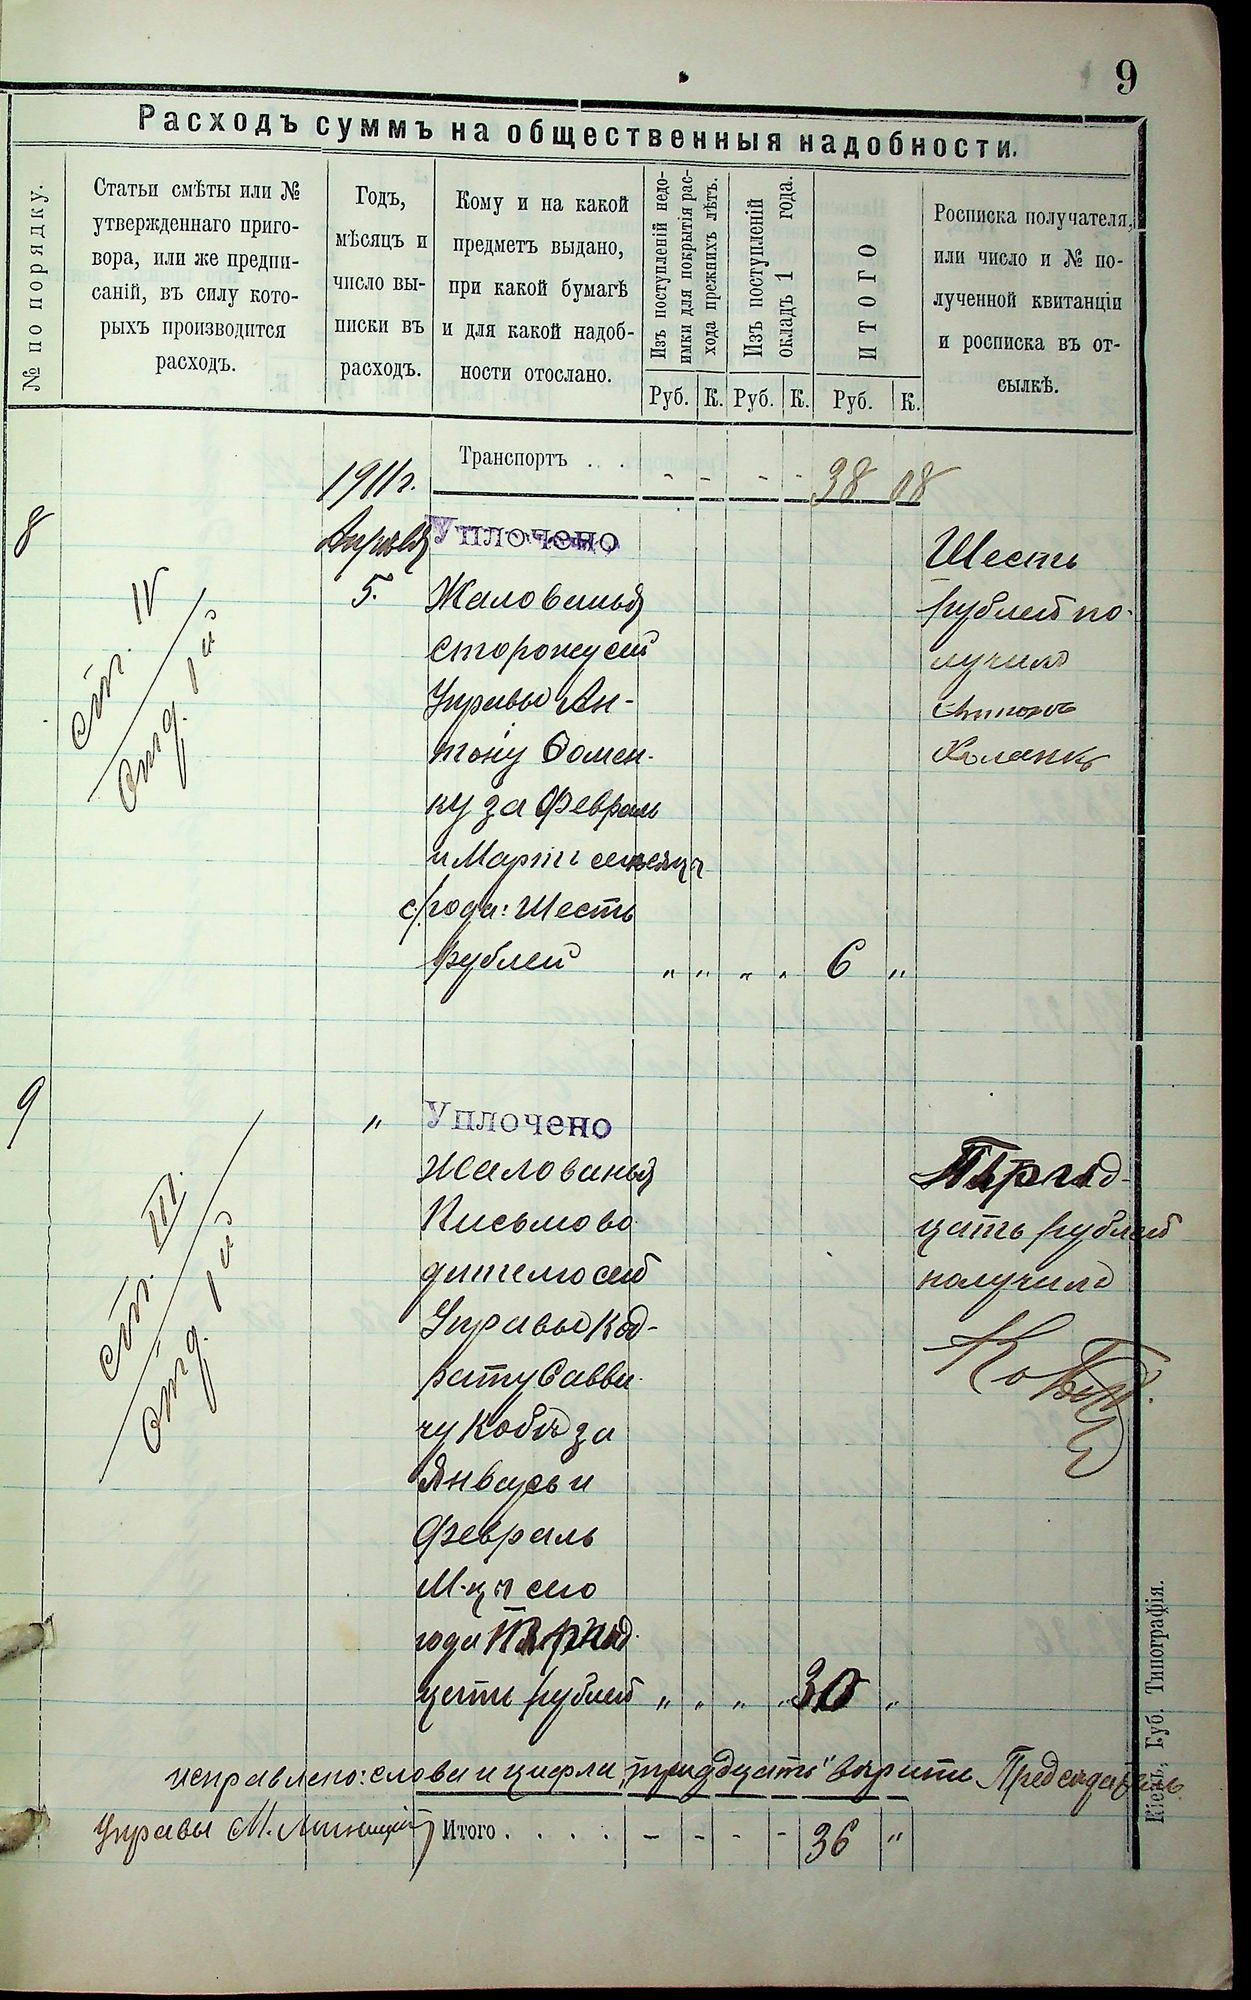 9
Расходъ суммъ на общественныя надобности.
№ по порядку.
Статьи смѣты или №
утвержденнаго приго-
вора, или же предпи-
саній, въ силу кото-
рыхъ производится
расходъ.
Годъ,
мѣсяцъ и
число вы-
писки въ
расходъ.
Кому и на какой
предметъ выдано,
при какой бумагѣ
и для какой надоб-
ности отослано.
Изъ поступленій недо-
имки для покрытія рас-
хода прежнихъ лѣтъ.
Изъ поступленій
окладъ 1 года.
ИТОГО
Росписка получателя,
или число и № по-
лученной квитанціи
и росписка въ от-
сылкѣ.
Руб. К. Руб. К. Руб. К.
1911 г. Транспортъ . . - - - - 38 08
8
Апрѣля
5.
ст. IV
отд. 1й
Уплочено
Жалованья
сторожу сей
Управы Ан-
тону Фомен-
ку за Февраль
и Мартъ месяцы
с/года: Шесть
рублей " " " " 6 "
Шесть
рублей по-
лучилъ
Антонъ
9
"
ст. III.
отд. 1й
Уплочено
Жалованья
Письмово
дителю сей
Управы Код-
рату Савви-
чу Кобцъ за
Январь и
Февраль
М-цы сего
года Тридъ
цать рублей " " " " 30 "
Тридъ-
цать рублей
получилъ
исправлено: слова и цифры „тридцать" вѣрить Предсѣдатель
Управы М.
Итого . . . . . - - - - 36 "
Кіевъ, Губ. Типографія.